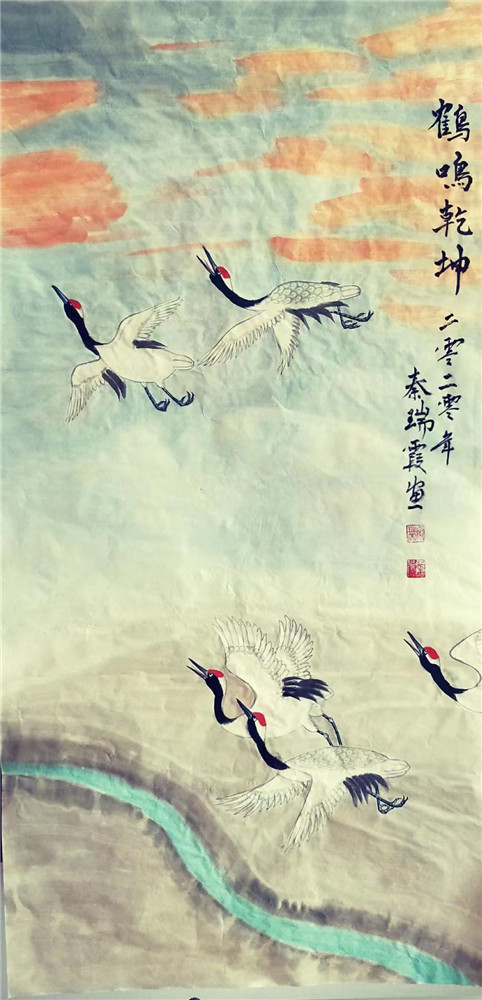 鶴鸣乾坤
二零二零年
秦瑞霞画